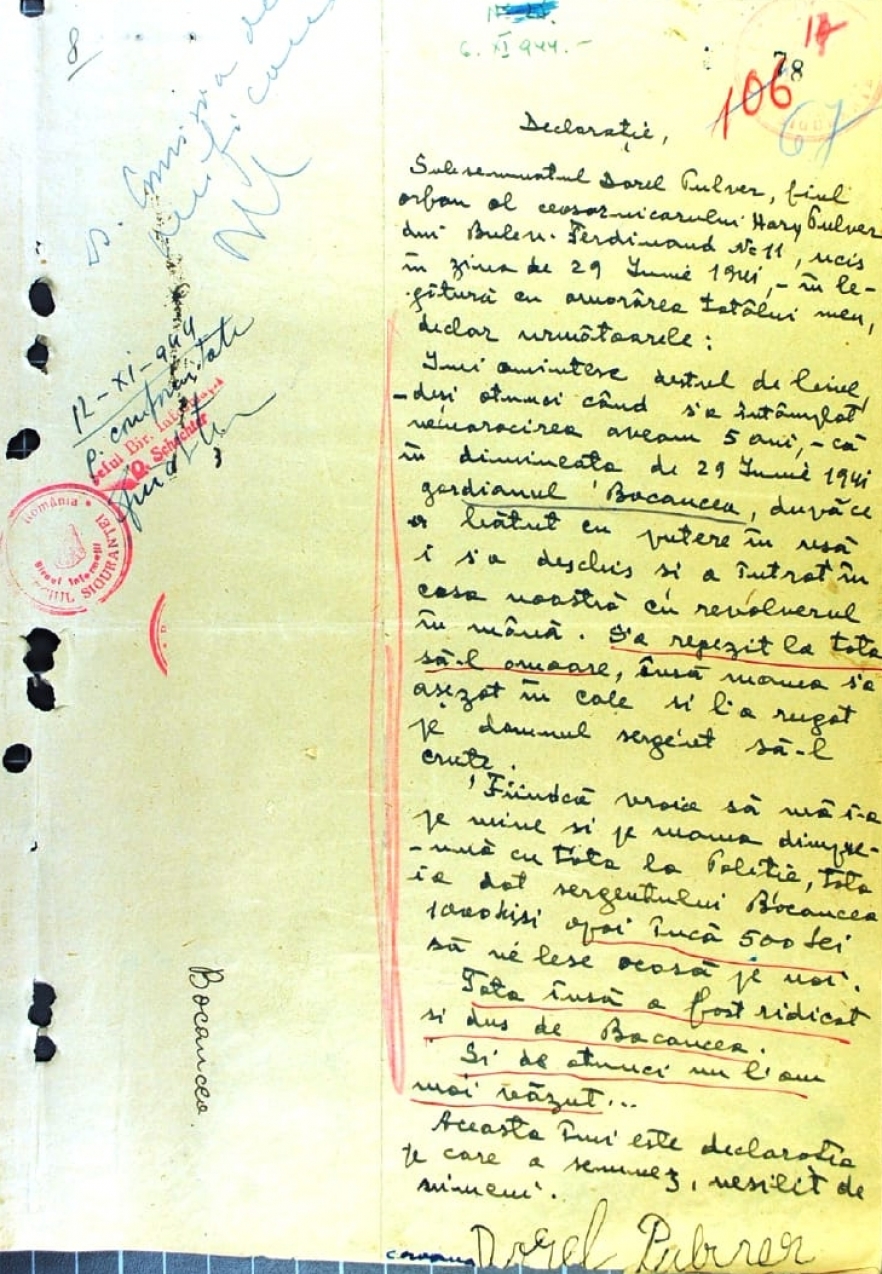 8
6. XI 944.-
14
78
106
67
Declarație,
Subsemnatul Dorel Pulver, fiul
orfan al ceasornicarului Hary Pulver
din Bulev. Ferdinand No 11, ucis
în ziua de 29 Iunie 1941,- în le-
gătură cu omorârea tatălui meu,
declar următoarele:
Imi amintesc destul de bine,
- deși atunci când s'a întâmplat
nenorocirea aveam 5 ani, - că
în dimineața de 29 Iunie 1941
gardianul Bocancea, după ce
a bătut cu putere în usă
i s'a deschis si a intrat în
casa noastră cu revolverul
în mână. S'a repezit la tata
să-l omoare, însă mama s'a
așezat în cale si l'a rugat
pe domnul sergent să-l
crute.
Fiindcă vroia să mă i-a
pe mine si pe mama dimpre-
-ună cu tata la Politie, tata
i-a dat sergentului Bocancea
1000 lei si apoi încă 500 lei
să ne lese acasă pe noi.
Tata însă a fost ridicat
si dus de Bocancea.
Si de atunci nu l'am
mai văzut...
Aceasta îmi este declaratia
pe care o semnez, nesilit de
nimeni.
Dorel Pulver
12-XI-944
p. conformitate
Șeful Bir.
Schechter
România
Biroul Informații
SIGURANTEI
Bocancea